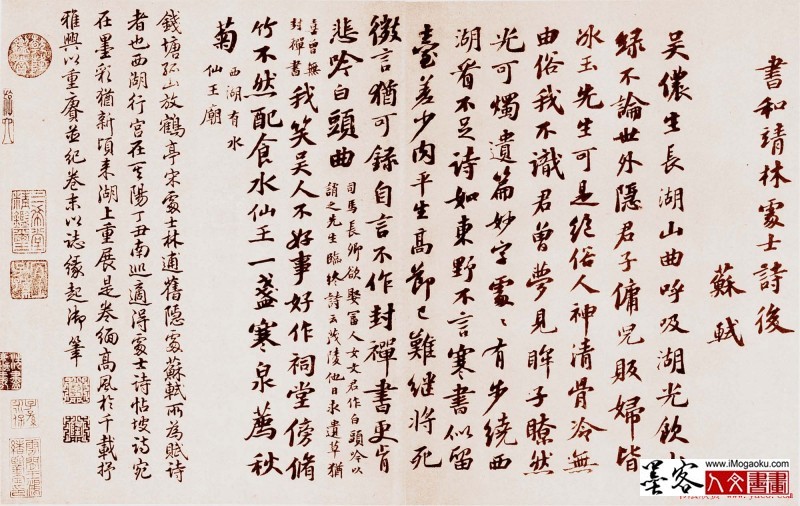 書和靖林處士詩後
蘇軾
吳儂生長湖山曲呼吸湖光飲山
綠不論世外隱君子傭兒販婦皆
冰玉先生可是絕俗人神清骨冷無
由俗我不識君曾夢見眸子瞭然
光可燭遺篇妙字處〻有步繞西
湖看不足詩如東野不言寒書似留
臺差少肉平生高節已難繼將死
微言猶可錄自言不作封禪書更肯
悲吟白頭曲
司馬長卿欲娶富人女文君作白頭吟以
誚之先生臨終詩云茂陵他日求遺草猶
喜曾無
封禪書
我笑吳人不好事好作祠堂傍脩
竹不然配食水仙王一盞寒泉薦秋
菊
西湖有水
仙王廟
錢塘孤山放鶴亭宋處士林逋舊隱處蘇軾所為賦詩
者也西湖行宮在其陽丁丑南巡適得處士詩帖坡詩宛
在墨彩猶新頃來湖上重展是卷緬高風於千載抒
雅興以重賡並紀卷末以誌緣起御筆
墨客
www.iMogaoku.com
人文書畫